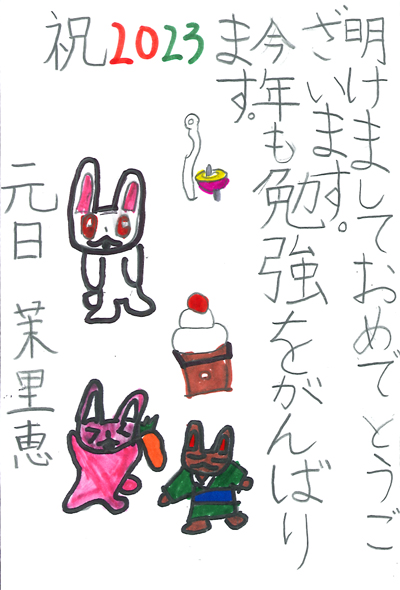 明けましておめでとうご
ざいます。
今年も勉強をがんばり
ます。
祝2023
元日 茉里恵